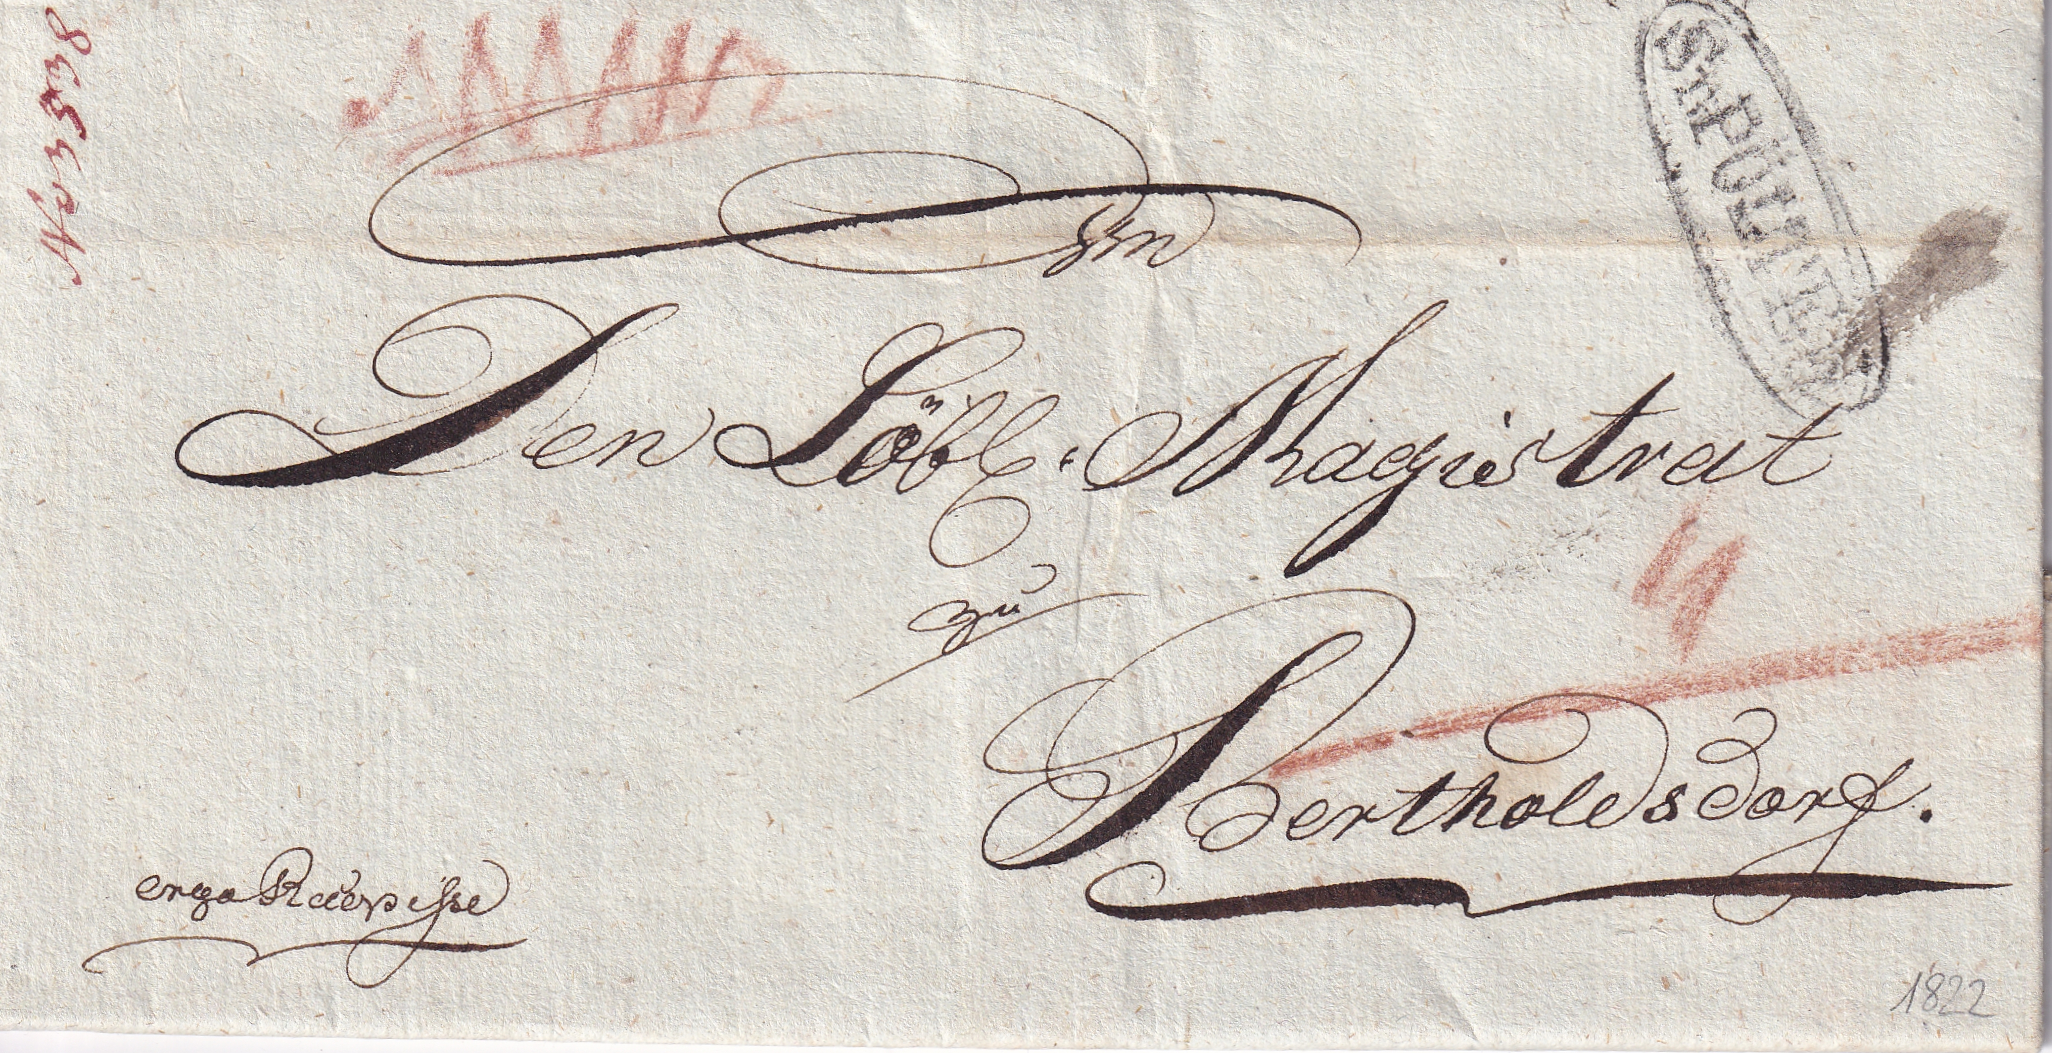 No 3538
St PÖLTEN
Von
Den Löbl. Magistrat
zu
Bertholdsdorf.
ergo Recepisse
1822